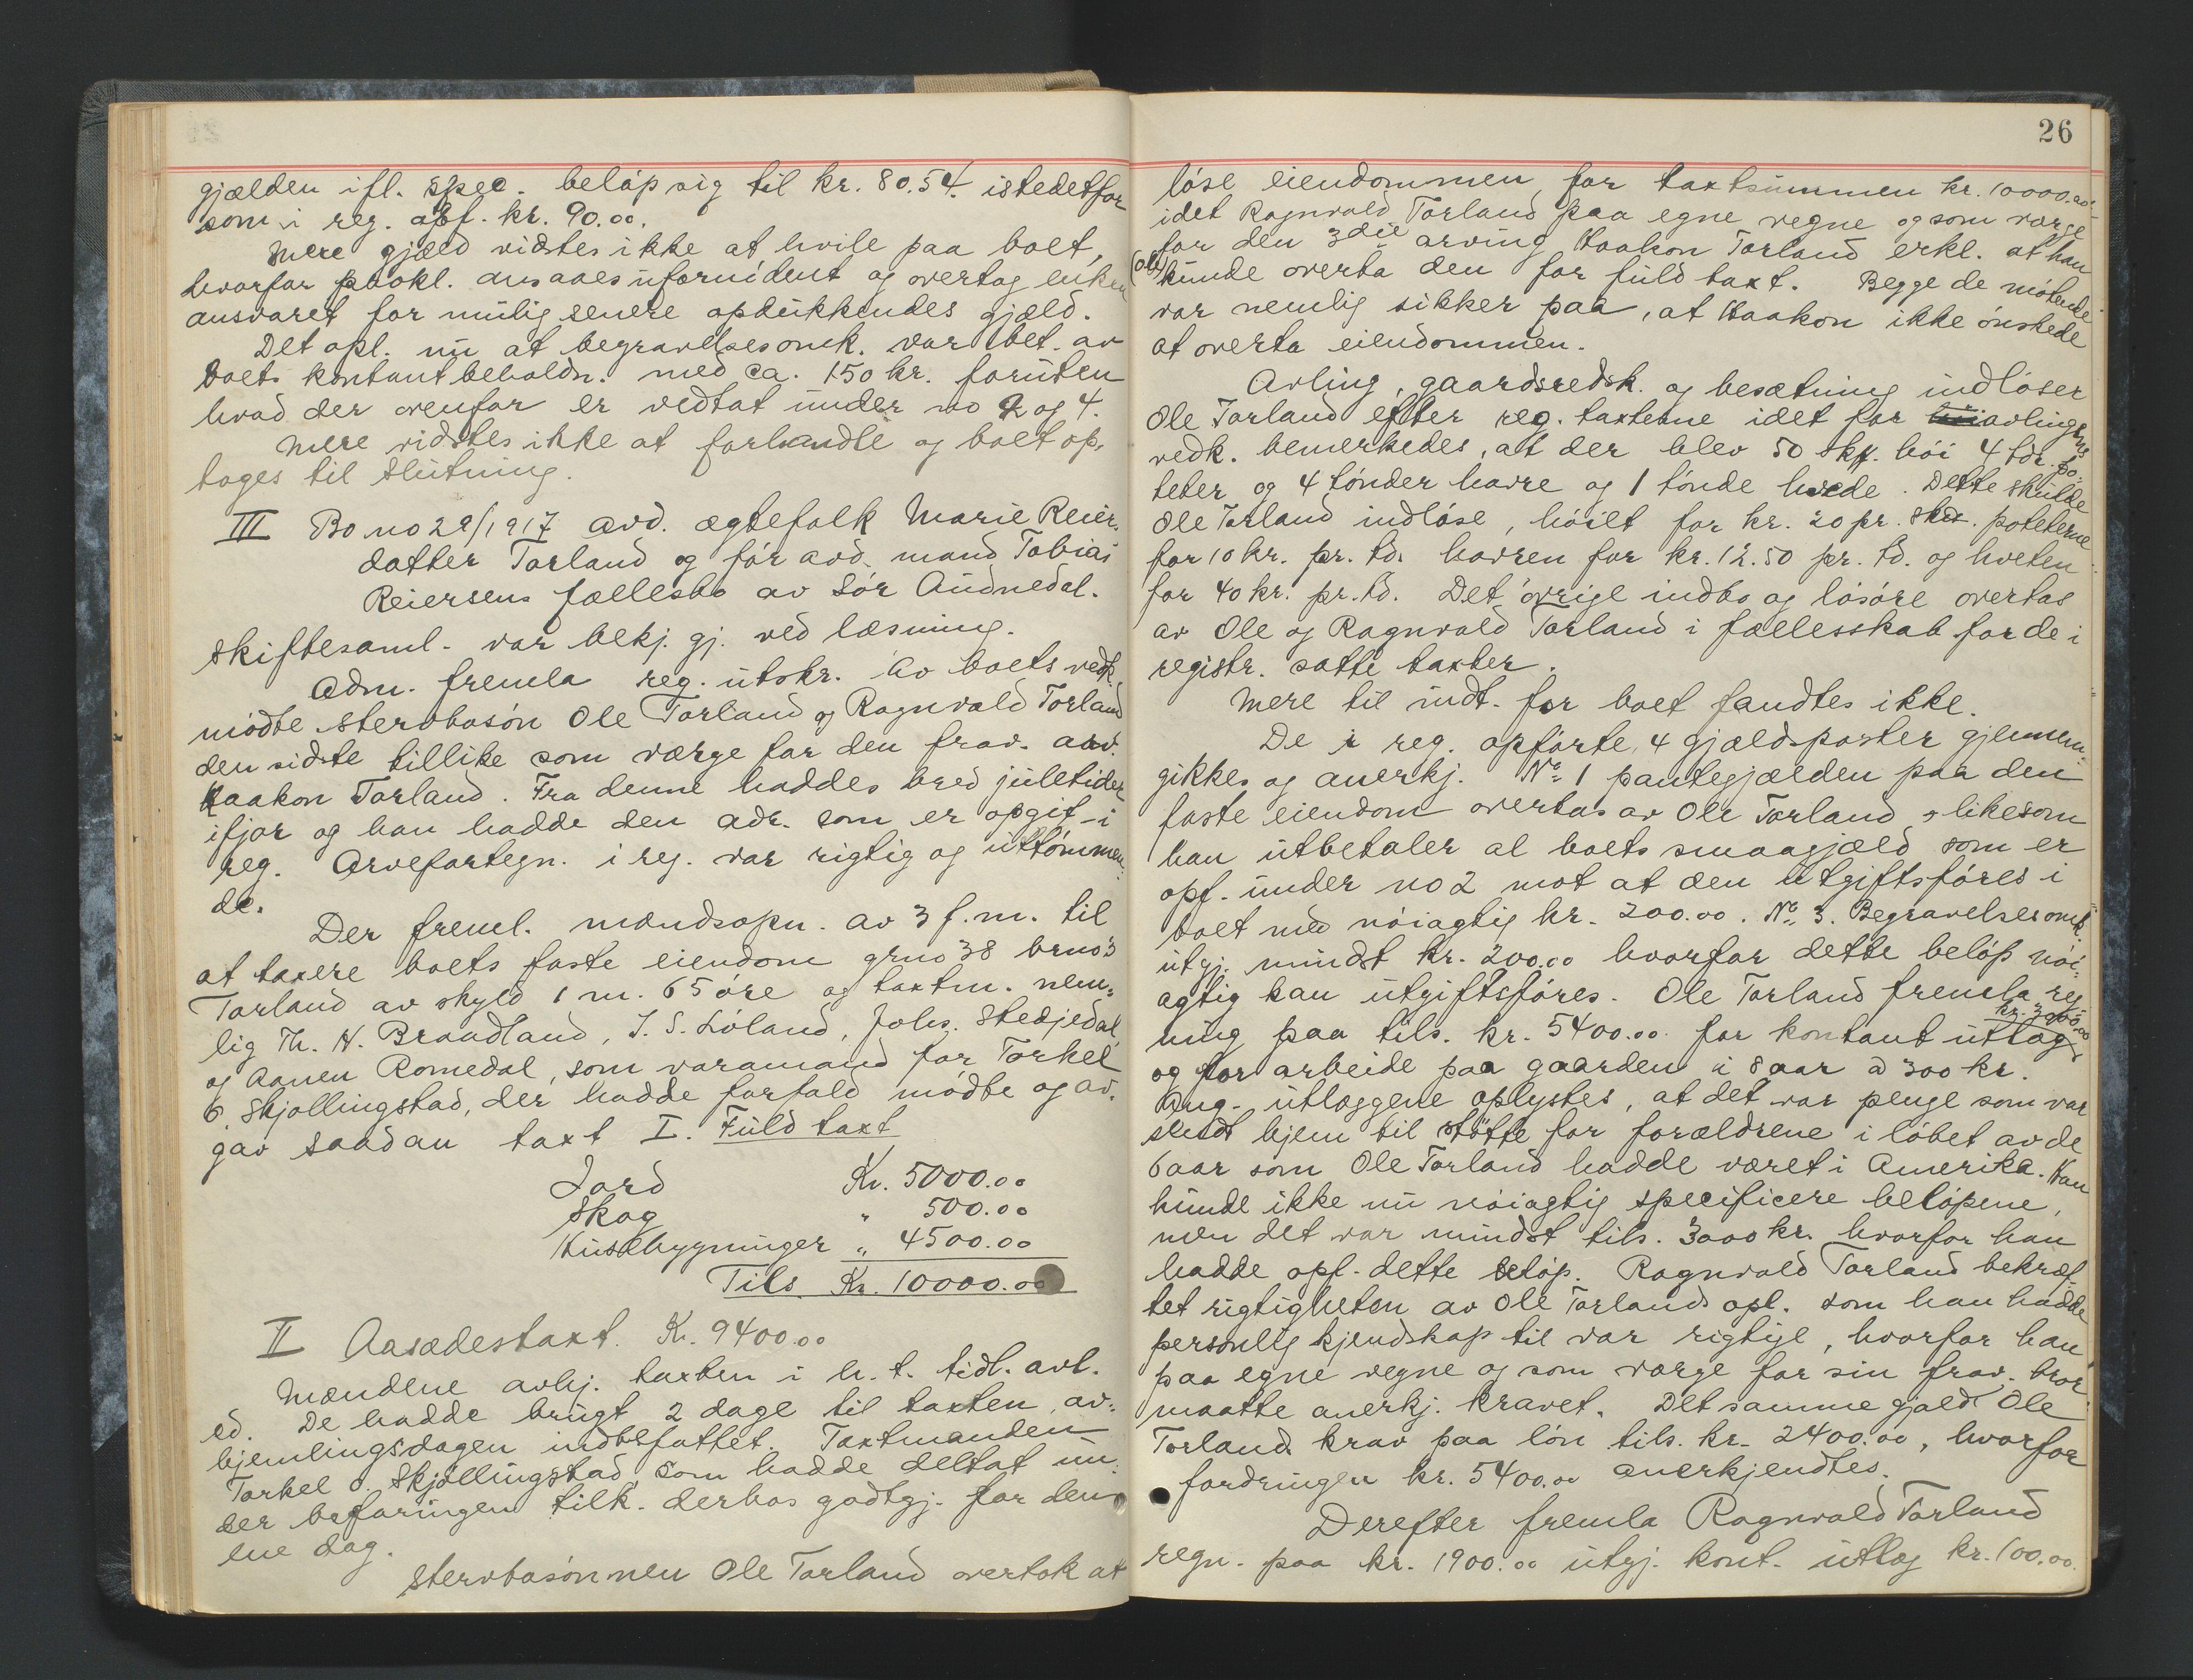 gjælden ifl. spec. beløp sig til kr. 80.54 istedetfor
som i reg. opf. kr. 90.00.
Mere gjæld vidstes ikke at hvile paa boet,
hvorfor prokl. ansaaes ufornødent og overtog enken
ansvaret for mulig senere opdukkendes gjæld.
Det opl. nu at begravelsesomk. var bet. av
boets kontantbeholdn. med ca. 150 kr. foruten
hvad der ovenfor er vedtat under no 2 og 4.
Mere vidstes ikke at forhandle og boet op-
toges til slutning.
III Bo no 29/1917 avd. ægtefolk Marie Reier-
datter Torland og før avd. mand Tobias
Reiersens fællesbo av Sør Audnedal.
Skiftesaml. var bekj. gj. ved læsning.
Adm. fremla reg. utskr. Av boets vedk.
mødte stervbosøn Ole Torland og Ragnvald Torland
den sidste tillike som værge for den frav. arv.
Haakon Torland. Fra denne haddes brev juletider
ifjor og han hadde den adr. som er opgit i
reg. Arvefortegn. i reg. var rigtig og uttømmen-
de.
Der freml. mændsopn. av 3 f.m. til
at taxere boets faste eiendom grno 38 brno 3
Torland av skyld 1 m. 65 øre og taxtm. nem-
lig Th. N. Braadland, J. S. Løland, Johs. Stedjedal
og Aanen Romedal, som varamand for Torkel
O. Skjollingstad, der hadde forfald mødte og av-
gav saadan taxt I. Fuld taxt
Jord Kr. 5000.00
Skog " 500.00
Husebygninger " 4500.00
Tils. Kr. 10000.00
II Aasædestaxt. Kr. 9400.00
Mændene avhj. taxten i h. t. tidl. avl.
ed. De hadde brugt 2 dage til taxten, av-
hjemlingsdagen indbefattet. Taxtmanden
Torkel O. Skjollingstad, som hadde deltat un-
der befaringen tilk. derhos godtgj. for den
ene dag.
Stervbosønnen Ole Torland overtok at
26
løse eiendommen, for taxtsummen kr. 10000.00
idet Ragnvald Torland paa egne vegne og som værge
for den 3die arving Haakon Torland erkl. at han
(Ole) kunde overta den for fuld taxt. Begge de møtende
var nemlig sikker paa, at Haakon ikke ønskede
at overta eiendommen.
Avling, gaardsredsk. og besætning indløser
Ole Torland efter reg. taxterne idet for avlingens
vedk. bemerkedes, at der blev 50 skp. høi 4 tdr. po-
teter og 4 tønder havre og 1 tønde hvede. Dette skulde
Ole Torland indløse, høiet for kr. 20 pr. skp. poteterne
for 10 kr. pr. td. havren for kr. 12.50 pr. td. og hveten
for 40 kr. pr. td. Det øvrige indbo og løsøre overtas
av Ole og Ragnvald Torland i fællesskab for de i
registr. satte taxter.
Mere til indt. for boet fandtes ikke.
De i reg. opførte 4 gjældsposter gjennem-
gikkes og anerkj. No 1 pantegjælden paa den
faste eiendom overtas av Ole Torland, likesom
han utbetaler al boets smaagjæld som er
opf. under no 2 mot at den utgiftsføres i
boet med nøiagtig kr. 200.00. No 3. Begravelsesomk.
utgj. mindst kr. 200.00 hvorfor dette beløp nøi-
agtig kan utgiftsføres. Ole Torland fremla reg-
ning paa tils. kr. 5400.00 for kontant utlagt kr. 3000.00
og for arbeide paa gaarden i 8 aar à 300 kr.
Ang. utlæggene oplystes, at det var penge som var
sendt hjem til støtte for forældrene i løbet av de
6 aar som Ole Torland hadde været i Amerika. Han
kunde ikke nu nøiagtig specificere beløpene,
men det var mindst tils. 3000 kr. hvorfor han
hadde opf. dette beløp. Ragnvald Torland bekræf-
tet rigtigheten av Ole Torlands opl. som han hadde
personlig kjendskap til var rigtige, hvorfor han
paa egne vegne og som værge for sin frav. bror
maatte anerkj. kravet. Det samme gjaldt Ole
Torlands krav paa løn tils. kr. 2400.00, hvorfor
fordringen kr. 5400.00 anerkjendtes.
Derefter fremla Ragnvald Torland
regn. paa kr. 1900.00 utgj. kont. utlæg kr. 100.00.